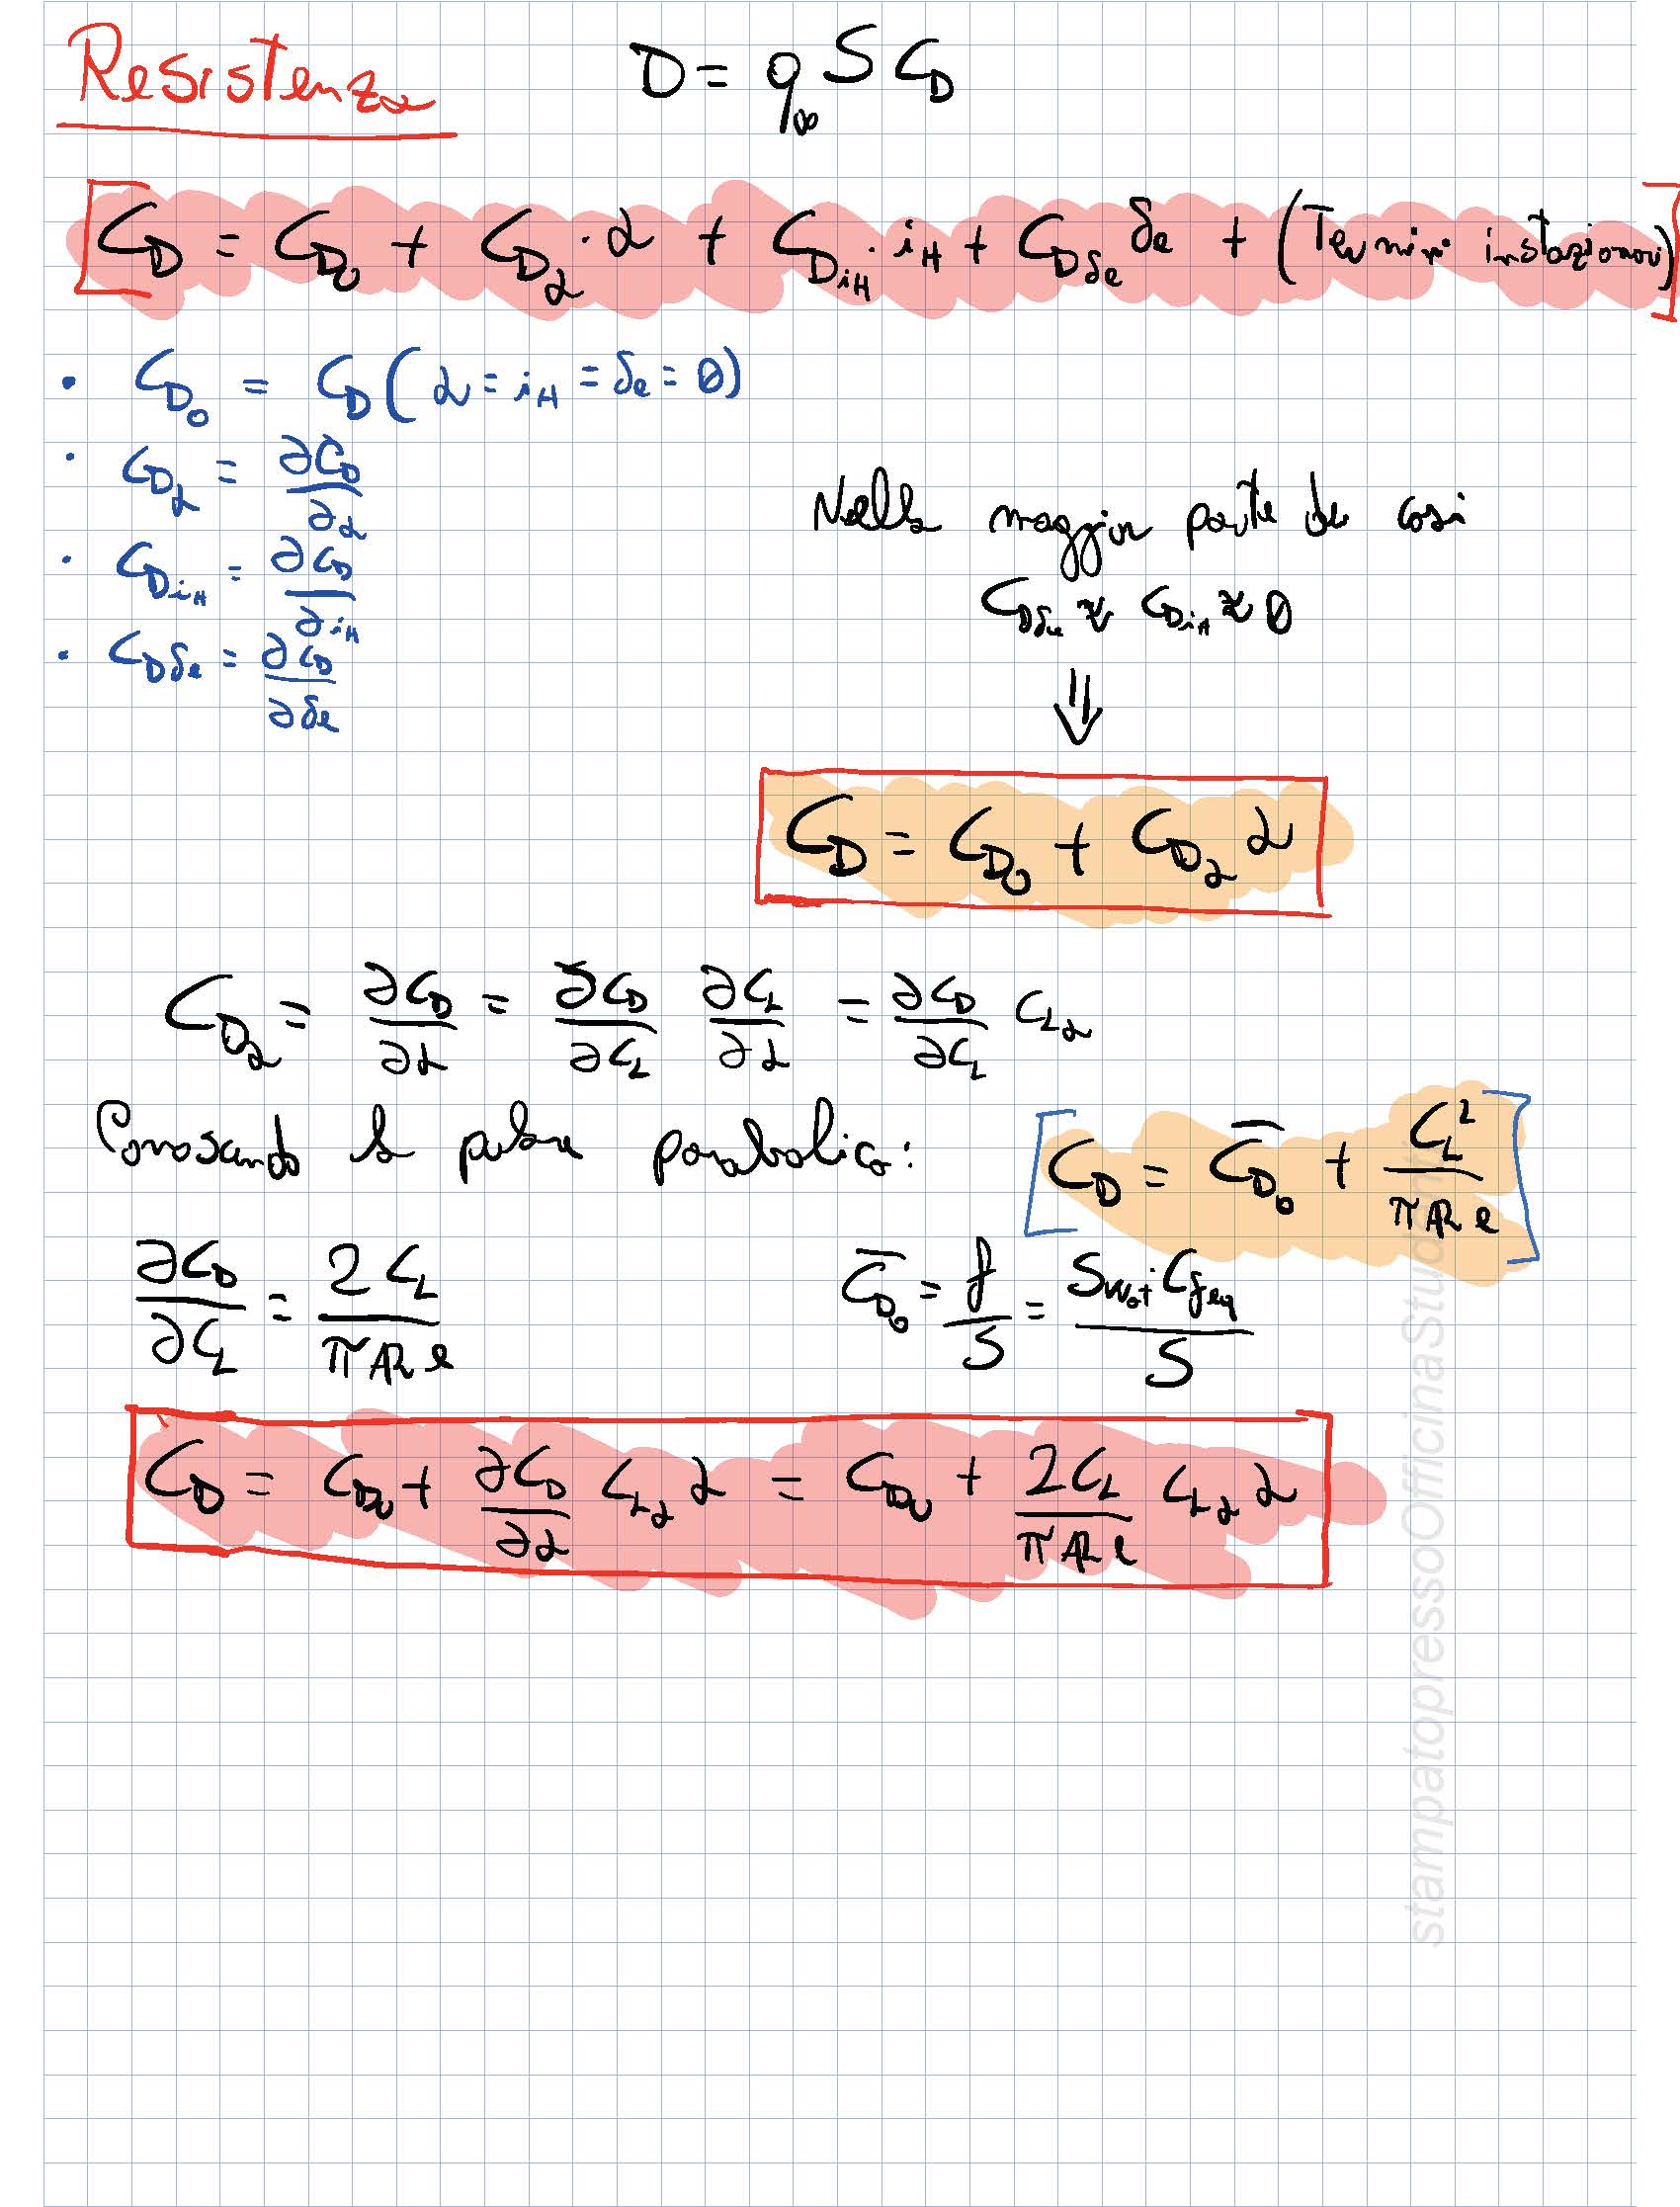 Resistenza D = q∞ S C_D
[C_D = C_D0 + C_Dα · α + C_DiH · i_H + C_Dδe δe + (Termini instazionari)]
• C_D0 = C_D (α = i_H = δe = 0)
• C_Dα = ∂C_D/∂α
Nella maggior parte de casi
• C_DiH = ∂C_D/∂i_H
C_Dδe ≈ C_DiH ≈ 0
• C_Dδe = ∂C_D/∂δe
⇓
C_D = C_D0 + C_Dα α
C_Dα = ∂C_D/∂α = ∂C_D/∂C_L ∂C_L/∂α = ∂C_D/∂C_L C_Lα
parabolica: [C_D = C̅_D0 + C_L²/(π AR e)]
∂C_D/∂C_L = 2C_L/(π AR e) C̅_D0 = f/S = S_wet C_feq/S
C_D = C_D0 + ∂C_D/∂α C_Lα α = C_D0 + 2C_L/(π AR e) C_Lα α
stampatopressoOfficinaStudenti